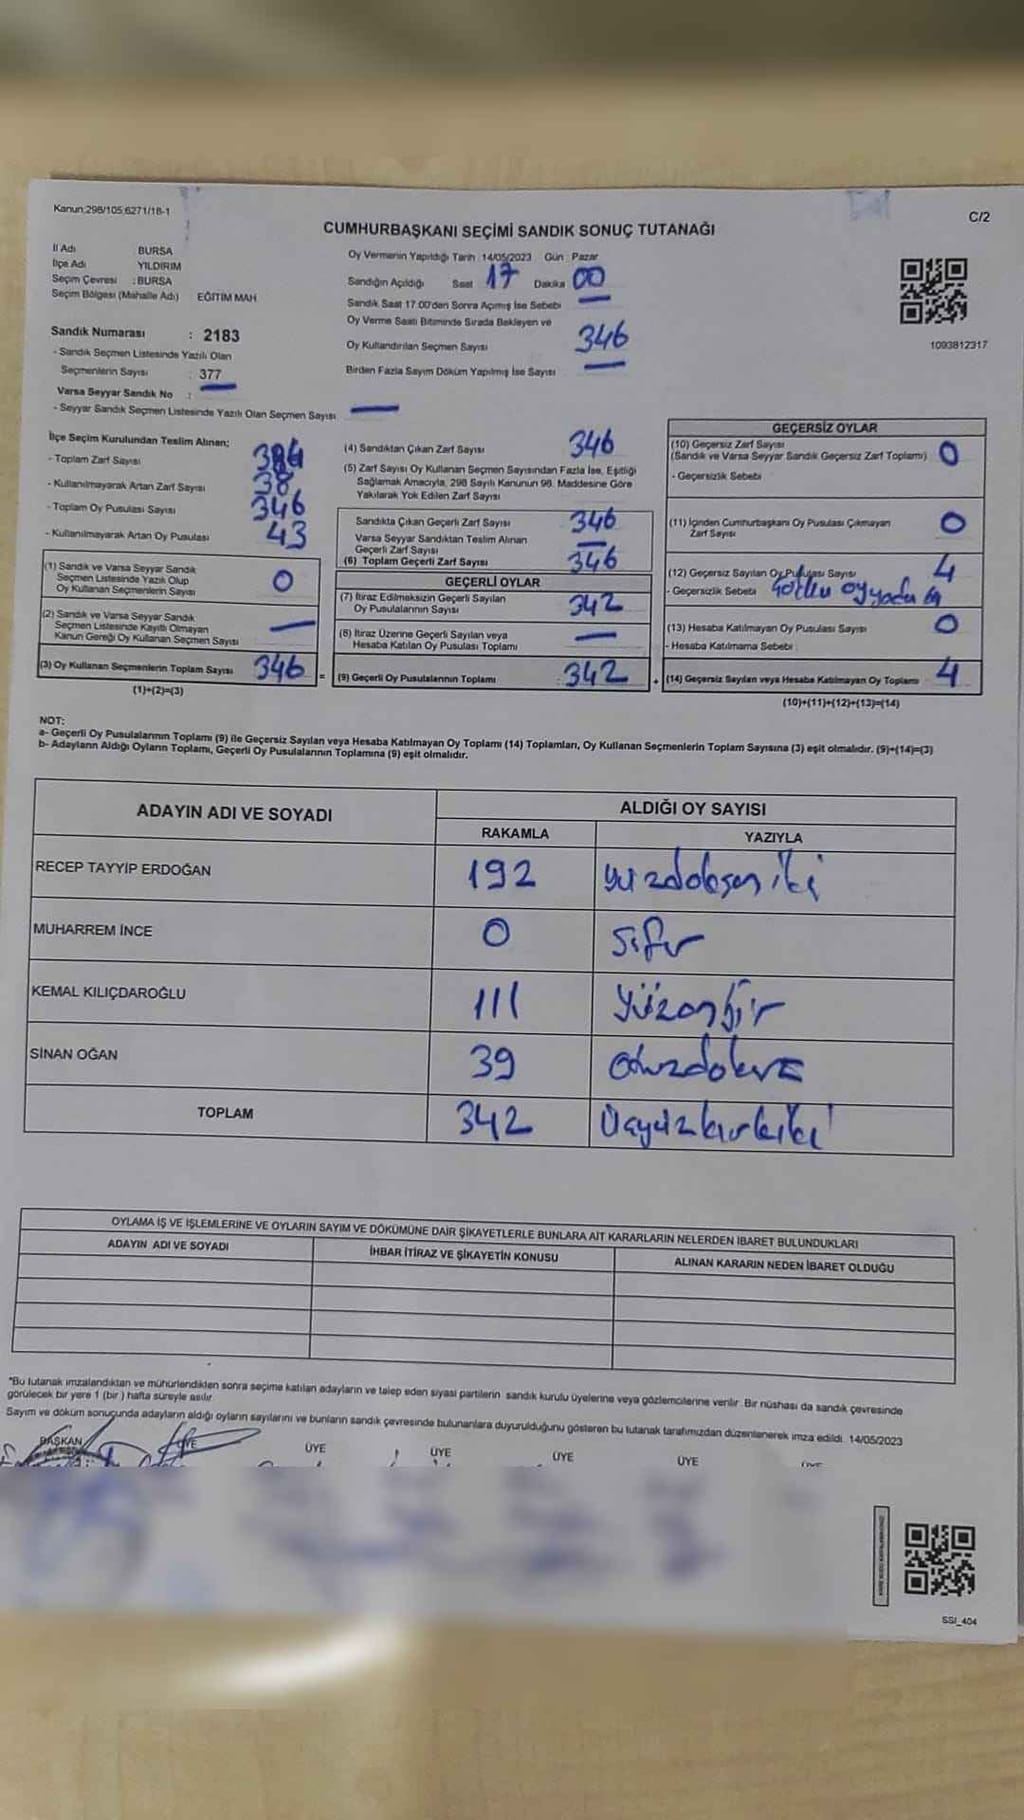 Kanun;298/105;6271/18-1
C/2
CUMHURBAŞKANI SEÇİMİ SANDIK SONUÇ TUTANAĞI
İl Adı BURSA
İlçe Adı YILDIRIM
Seçim Çevresi :BURSA
Seçim Bölgesi (Mahalle Adı) EĞİTİM MAH
Oy Vermenin Yapıldığı Tarih :14/05/2023 Gün : Pazar
Sandığın Açıldığı Saat 17 Dakika 00
Sandık Saat 17:00'den Sonra Açılmış İse Sebebi
Oy Verme Saati Bitiminde Sırada Bekleyen ve
Oy Kullandırılan Seçmen Sayısı 346
Birden Fazla Sayım Döküm Yapılmış İse Sayısı
1093812317
Sandık Numarası : 2183
- Sandık Seçmen Listesinde Yazılı Olan
Seçmenlerin Sayısı : 377
Varsa Seyyar Sandık No :
- Seyyar Sandık Seçmen Listesinde Yazılı Olan Seçmen Sayısı
İlçe Seçim Kurulundan Teslim Alınan;
- Toplam Zarf Sayısı
- Kullanılmayarak Artan Zarf Sayısı 38
- Toplam Oy Pusulası Sayısı 346
- Kullanılmayarak Artan Oy Pusulası 43
(1) Sandık ve Varsa Seyyar Sandık
Seçmen Listesinde Yazılı Olup
Oy Kullanan Seçmenlerin Sayısı 0
(2) Sandık ve Varsa Seyyar Sandık
Seçmen Listesinde Kayıtlı Olmayan
Kanun Gereği Oy Kullanan Seçmen Sayısı
(3) Oy Kullanan Seçmenlerin Toplam Sayısı 346
(1)+(2)=(3)
(4) Sandıktan Çıkan Zarf Sayısı 346
(5) Zarf Sayısı Oy Kullanan Seçmen Sayısından Fazla İse, Eşitliği
Sağlamak Amacıyla, 298 Sayılı Kanunun 98. Maddesine Göre
Yakılarak Yok Edilen Zarf Sayısı
Sandıkta Çıkan Geçerli Zarf Sayısı 346
Varsa Seyyar Sandıktan Teslim Alınan
Geçerli Zarf Sayısı
(6) Toplam Geçerli Zarf Sayısı 346
GEÇERLİ OYLAR
(7) İtiraz Edilmeksizin Geçerli Sayılan
Oy Pusulalarının Sayısı 342
(8) İtiraz Üzerine Geçerli Sayılan veya
Hesaba Katılan Oy Pusulası Toplamı
= (9) Geçerli Oy Pusulalarının Toplamı : 342 +
GEÇERSİZ OYLAR
(10) Geçersiz Zarf Sayısı
(Sandık ve Varsa Seyyar Sandık Geçersiz Zarf Toplamı) 0
- Geçersizlik Sebebi
(11) İçinden Cumhurbaşkanı Oy Pusulası Çıkmayan
Zarf Sayısı 0
(12) Geçersiz Sayılan Oy Pusulası Sayısı 4
- Geçersizlik Sebebi
(13) Hesaba Katılmayan Oy Pusulası Sayısı 0
- Hesaba Katılmama Sebebi
(14) Geçersiz Sayılan veya Hesaba Katılmayan Oy Toplamı 4
(10)+(11)+(12)+(13)=(14)
NOT:
a- Geçerli Oy Pusulalarının Toplamı (9) ile Geçersiz Sayılan veya Hesaba Katılmayan Oy Toplamı (14) Toplamları, Oy Kullanan Seçmenlerin Toplam Sayısına (3) eşit olmalıdır. (9)+(14)=(3)
b- Adayların Aldığı Oyların Toplamı, Geçerli Oy Pusulalarının Toplamına (9) eşit olmalıdır.
ADAYIN ADI VE SOYADI ALDIĞI OY SAYISI
RAKAMLA YAZIYLA
RECEP TAYYİP ERDOĞAN 192 yüzdoksaniki
MUHARREM İNCE 0 sıfır
KEMAL KILIÇDAROĞLU 111 yüzonbir
SİNAN OĞAN 39 otuzdokuz
TOPLAM 342 Üçyüzkırkiki
OYLAMA İŞ VE İŞLEMLERİNE VE OYLARIN SAYIM VE DÖKÜMÜNE DAİR ŞİKAYETLERLE BUNLARA AİT KARARLARIN NELERDEN İBARET BULUNDUKLARI
ADAYIN ADI VE SOYADI İHBAR İTİRAZ VE ŞİKAYETİN KONUSU ALINAN KARARIN NEDEN İBARET OLDUĞU
*Bu tutanak imzalandıktan ve mühürlendikten sonra seçime katılan adayların ve talep eden siyasi partilerin sandık kurulu üyelerine veya gözlemcilerine verilir. Bir nüshası da sandık çevresinde
görülecek bir yere 1 (bir ) hafta süreyle asılır.
Sayım ve döküm sonuçunda adayların aldığı oyların sayılarını ve bunların sandık çevresinde bulunanlara duyurulduğunu gösteren bu tutanak tarafımızdan düzenlenerek imza edildi. 14/05/2023
BAŞKAN ÜYE ÜYE ÜYE ÜYE ÜYE
SSI_404